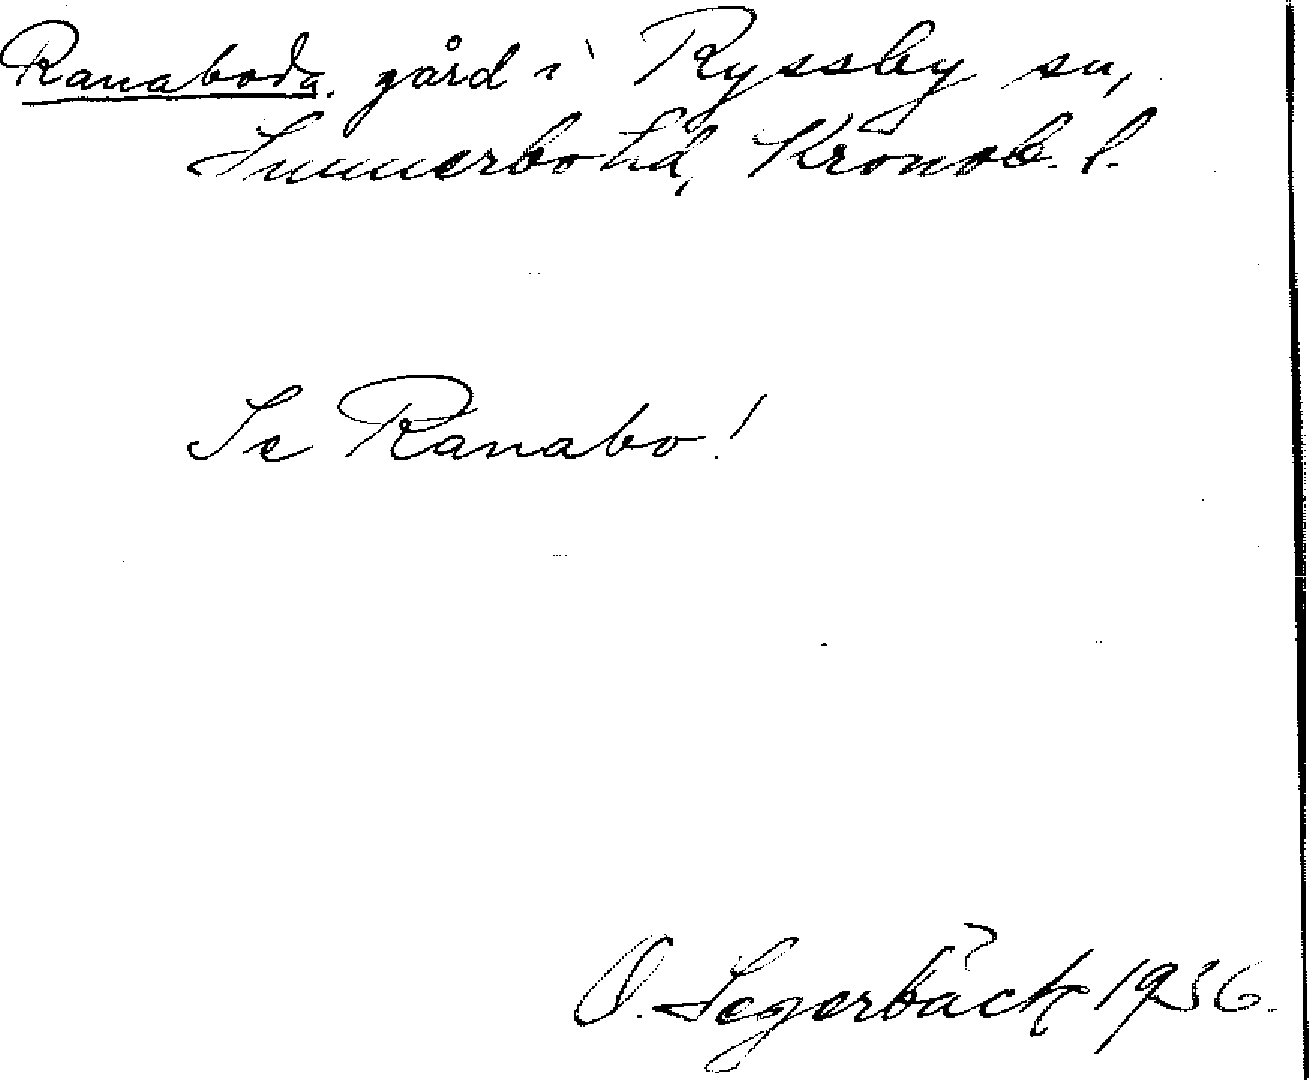 Ranaboda. gård i Ryssby sn,
Sunnerbo hd, Kronob. l.
Se Ranabo!
O. Segerbäck 1936.